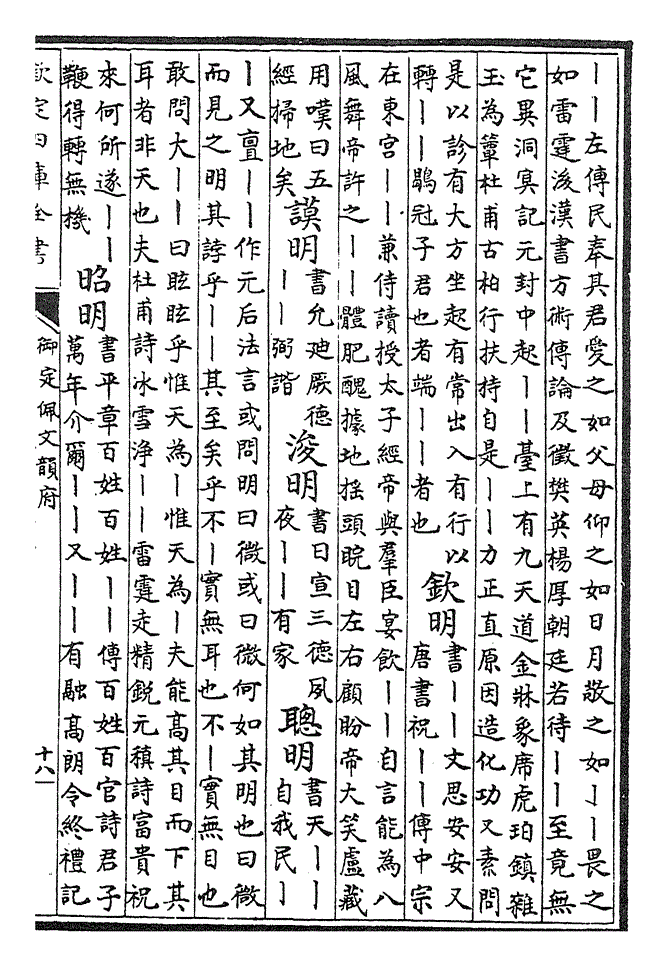 丨丨左傳民奉其君愛之如父母仰之如日月敬之如丨丨畏之
如雷霆後漢書方術傳論及徵樊英楊厚朝廷若待丨丨至竟無
它異洞冥記元封中起丨丨臺上有九天道金牀象席虎珀鎮雜
玉為簟杜甫古柏行扶持自是丨丨力正直原因造化功又素問
是以診有大方坐起有常出入有行以
轉丨丨鶡冠子君也者端丨丨者也
欽明
書丨丨文思安安又
唐書祝丨丨傳中宗
在東宫丨丨兼侍讀授太子經帝與羣臣宴飲丨丨自言能為八
風舞帝許之丨丨體肥醜據地揺頭睆目左右顧盼帝大笑盧藏
用嘆曰五
經掃地矣
謨明
書允廸厥德
丨丨弼諧
浚明
書日宣三德夙
夜丨丨有家
聰明
書天丨丨
自我民丨
丨又亶丨丨作元后法言或問明曰微或曰微何如其明也曰微
而見之明其誖乎丨丨其至矣乎不丨實無耳也不丨實無目也
敢問大丨丨曰眩眩乎惟天為丨惟天為丨夫能高其目而下其
耳者非天也夫杜甫詩冰雪浄丨丨雷霆走精鋭元稹詩富貴祝
來何所遂丨丨
鞭得轉無機
昭明
書平章百姓百姓丨丨傳百姓百官詩君子
萬年介爾丨丨又丨丨有融高朗令終禮記
欽定四庫全書
御定佩文韻府
十八